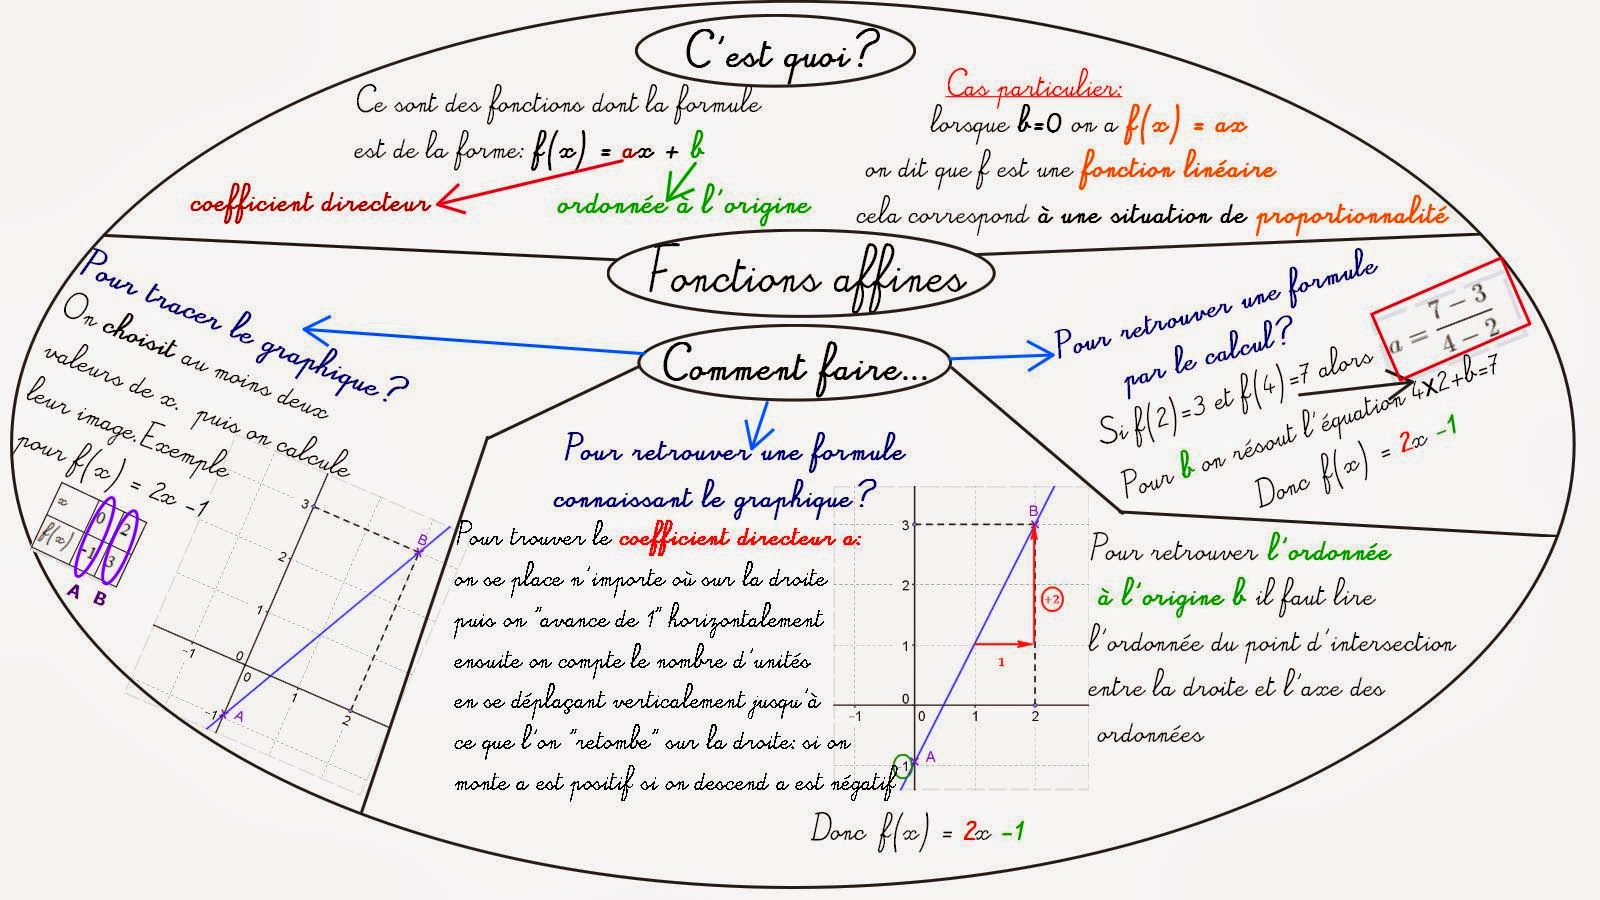 C'est quoi?
Ce sont des fonctions dont la formule
est de la forme: f(x) = ax + b
coefficient directeur
ordonnée à l'origine
Cas particulier:
lorsque b=0 on a f(x) = ax
on dit que f est une fonction linéaire
cela correspond à une situation de proportionnalité
Fonctions affines
Comment faire...
Pour tracer le graphique?
On choisit au moins deux
valeurs de x. puis on calcule
leur image. Exemple
pour f(x) = 2x -1
x 0 2
f(x) -1 3
A B
3
B
2
1
-1 0
0 1 2
-1 A
Pour retrouver une formule
connaissant le graphique?
Pour trouver le coefficient directeur a:
on se place n'importe où sur la droite
puis on "avance de 1" horizontalement
ensuite on compte le nombre d'unités
en se déplaçant verticalement jusqu'à
ce que l'on "retombe" sur la droite: si on
monte a est positif si on descend a est négatif
B
3
2
+2
1
1
0
-1 0 1 2
-1 A
Donc f(x) = 2x -1
Pour retrouver l'ordonnée
à l'origine b il faut lire
l'ordonnée du point d'intersection
entre la droite et l'axe des
ordonnées
Pour retrouver une formule
par le calcul?
Si f(2)=3 et f(4)=7 alors
a = 7 - 3 / 4 - 2
Pour b on résout l'équation 4x2+b=7
Donc f(x) = 2x -1